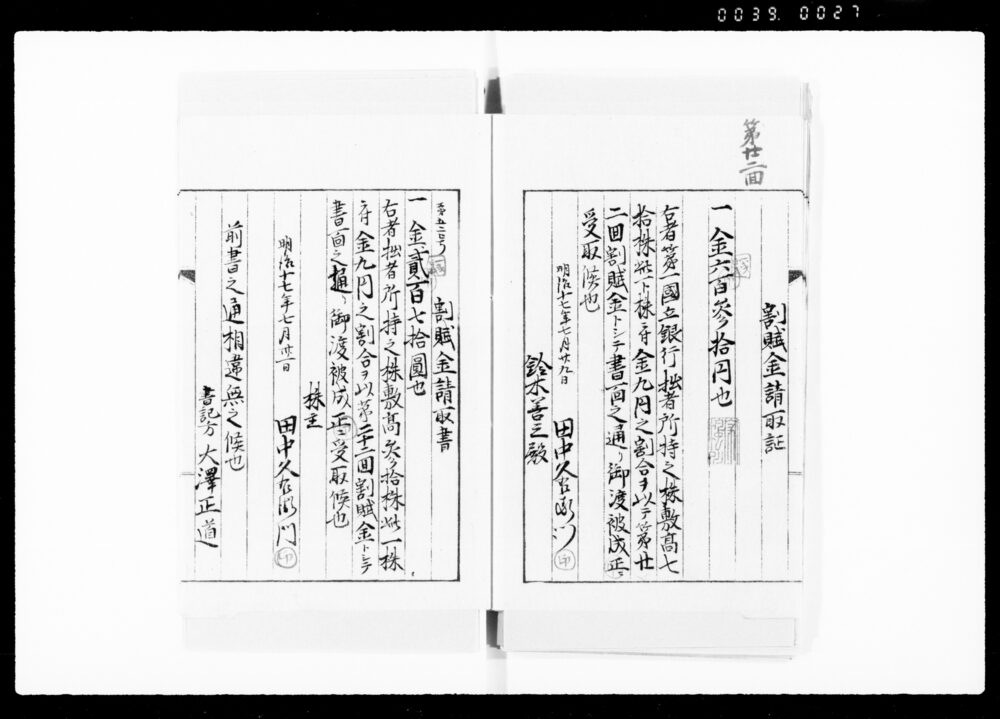 0039. 0027
第廿二回
割賦金請取証
一金六百参拾円也
右者第一國立銀行拙者所持之株敷高七
拾株此ト株ニ付金九円之割合ヲ以テ第廿
二回割賦金トシテ書面之通リ御渡被成正ニ
受取候也
明治十七年七月廿九日
田中久右衛門 印
鈴木善三殿
割賦金請取書
一金貳百七拾圓也
右者拙者所持之株敷高参拾株此一株
ニ付金九円之割合ヲ以第二十二回割賦金トシテ
書面之通リ御渡被成正ニ受取候也
明治十七年七月卅一日
株主
田中久右衛門 印
前書之通相違無之候也
書記方 大澤正道